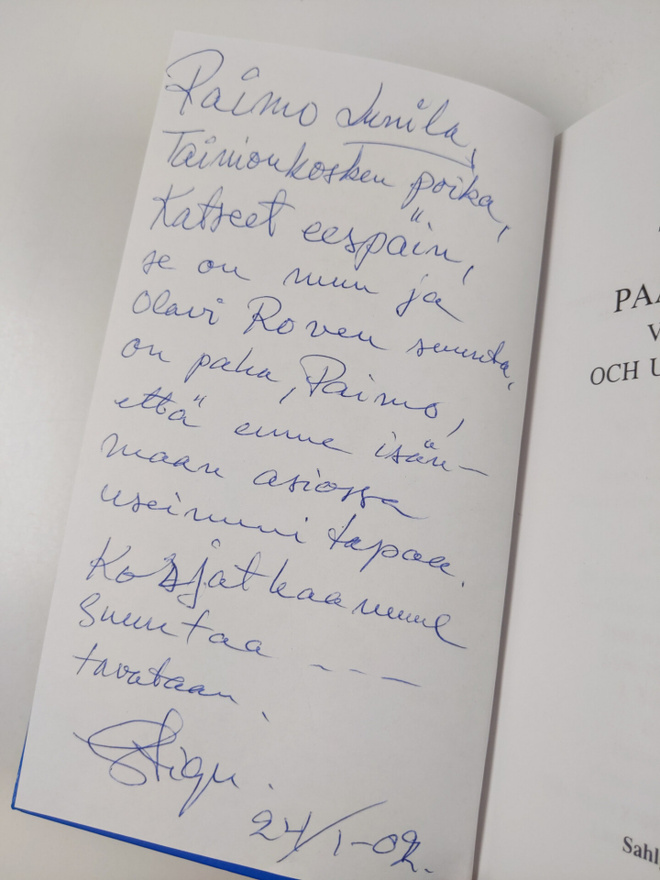 Raimo Junila,
Tainionkosken poika,
Katseet eespäin,
se on mun ja
Olavi Roven suunta,
on paha, Raimo,
että emme isän-
maan asiossa
useimmin tapaa.
Kosjatkaamme
suuntaa - - -
tavataan.
Stigu.
24/1-02.
PAA
V
OCH U
Sahl